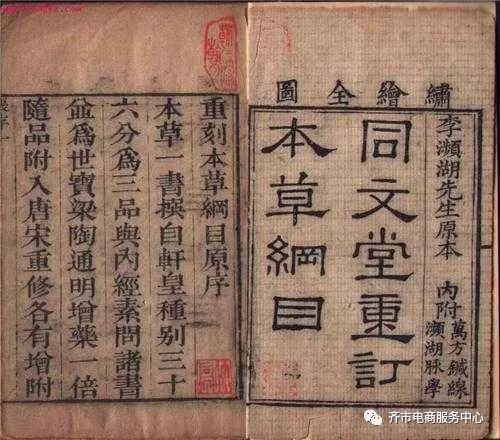 繡繪全圖
李瀕湖先生原本
內附萬方鍼線
瀕湖脉學
同文堂重訂
本草綱目
重刻本草綱目原序
本草一書撰自軒皇種别三十
六分爲三品與內經素問諸書
竝爲世寶梁陶通明增藥一倍
隨品附入唐宋重修各有增附
齐市电商服务中心